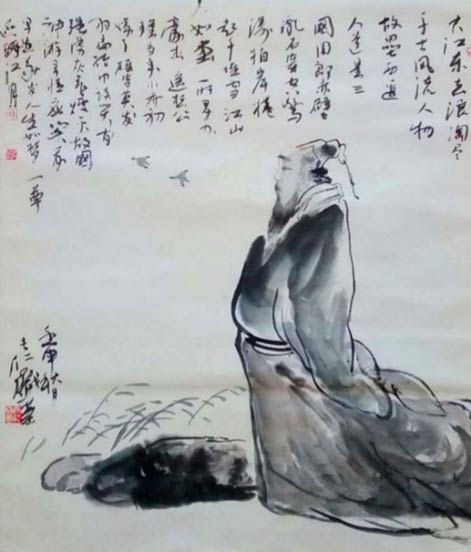 大江东去浪淘尽
千古风流人物
故垒西边
人道是三
國周郎赤壁
乱石穿空惊
涛拍岸捲
起千堆雪江山
如画一时多少
豪杰遥想公
瑾当年小乔初
嫁了雄姿英发
羽扇纶巾谈笑间
灰飞烟灭故國
神游多情應笑我
早生发人生如梦一尊
酹江月
壬申